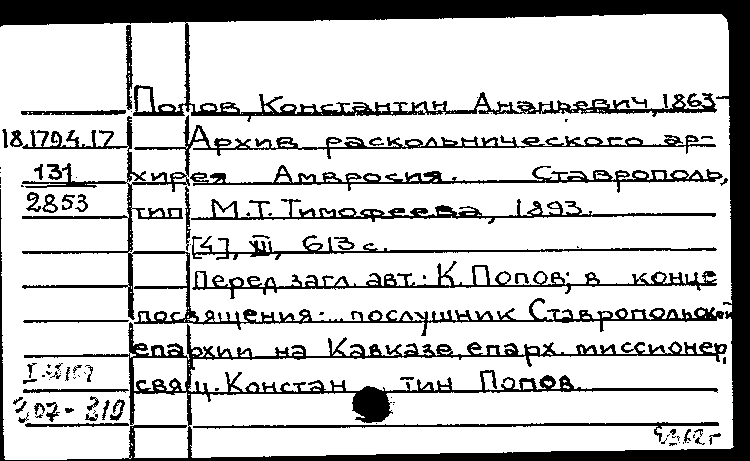 Попов, Константин Ананьевич, 1863-
18.179.4.17 Архив раскольнического ар-
131 хирея Амвросия. Ставрополь,
2853 тип М.Т. Тимофеева, 1893.
[4], III, 613 с.
Перед загл. авт.: К. Попов; в конце
посвящения:.. послушник Ставропольской
епархии на Кавказе, епарх. миссионер,
свящ. Констан тин Попов.
307-310